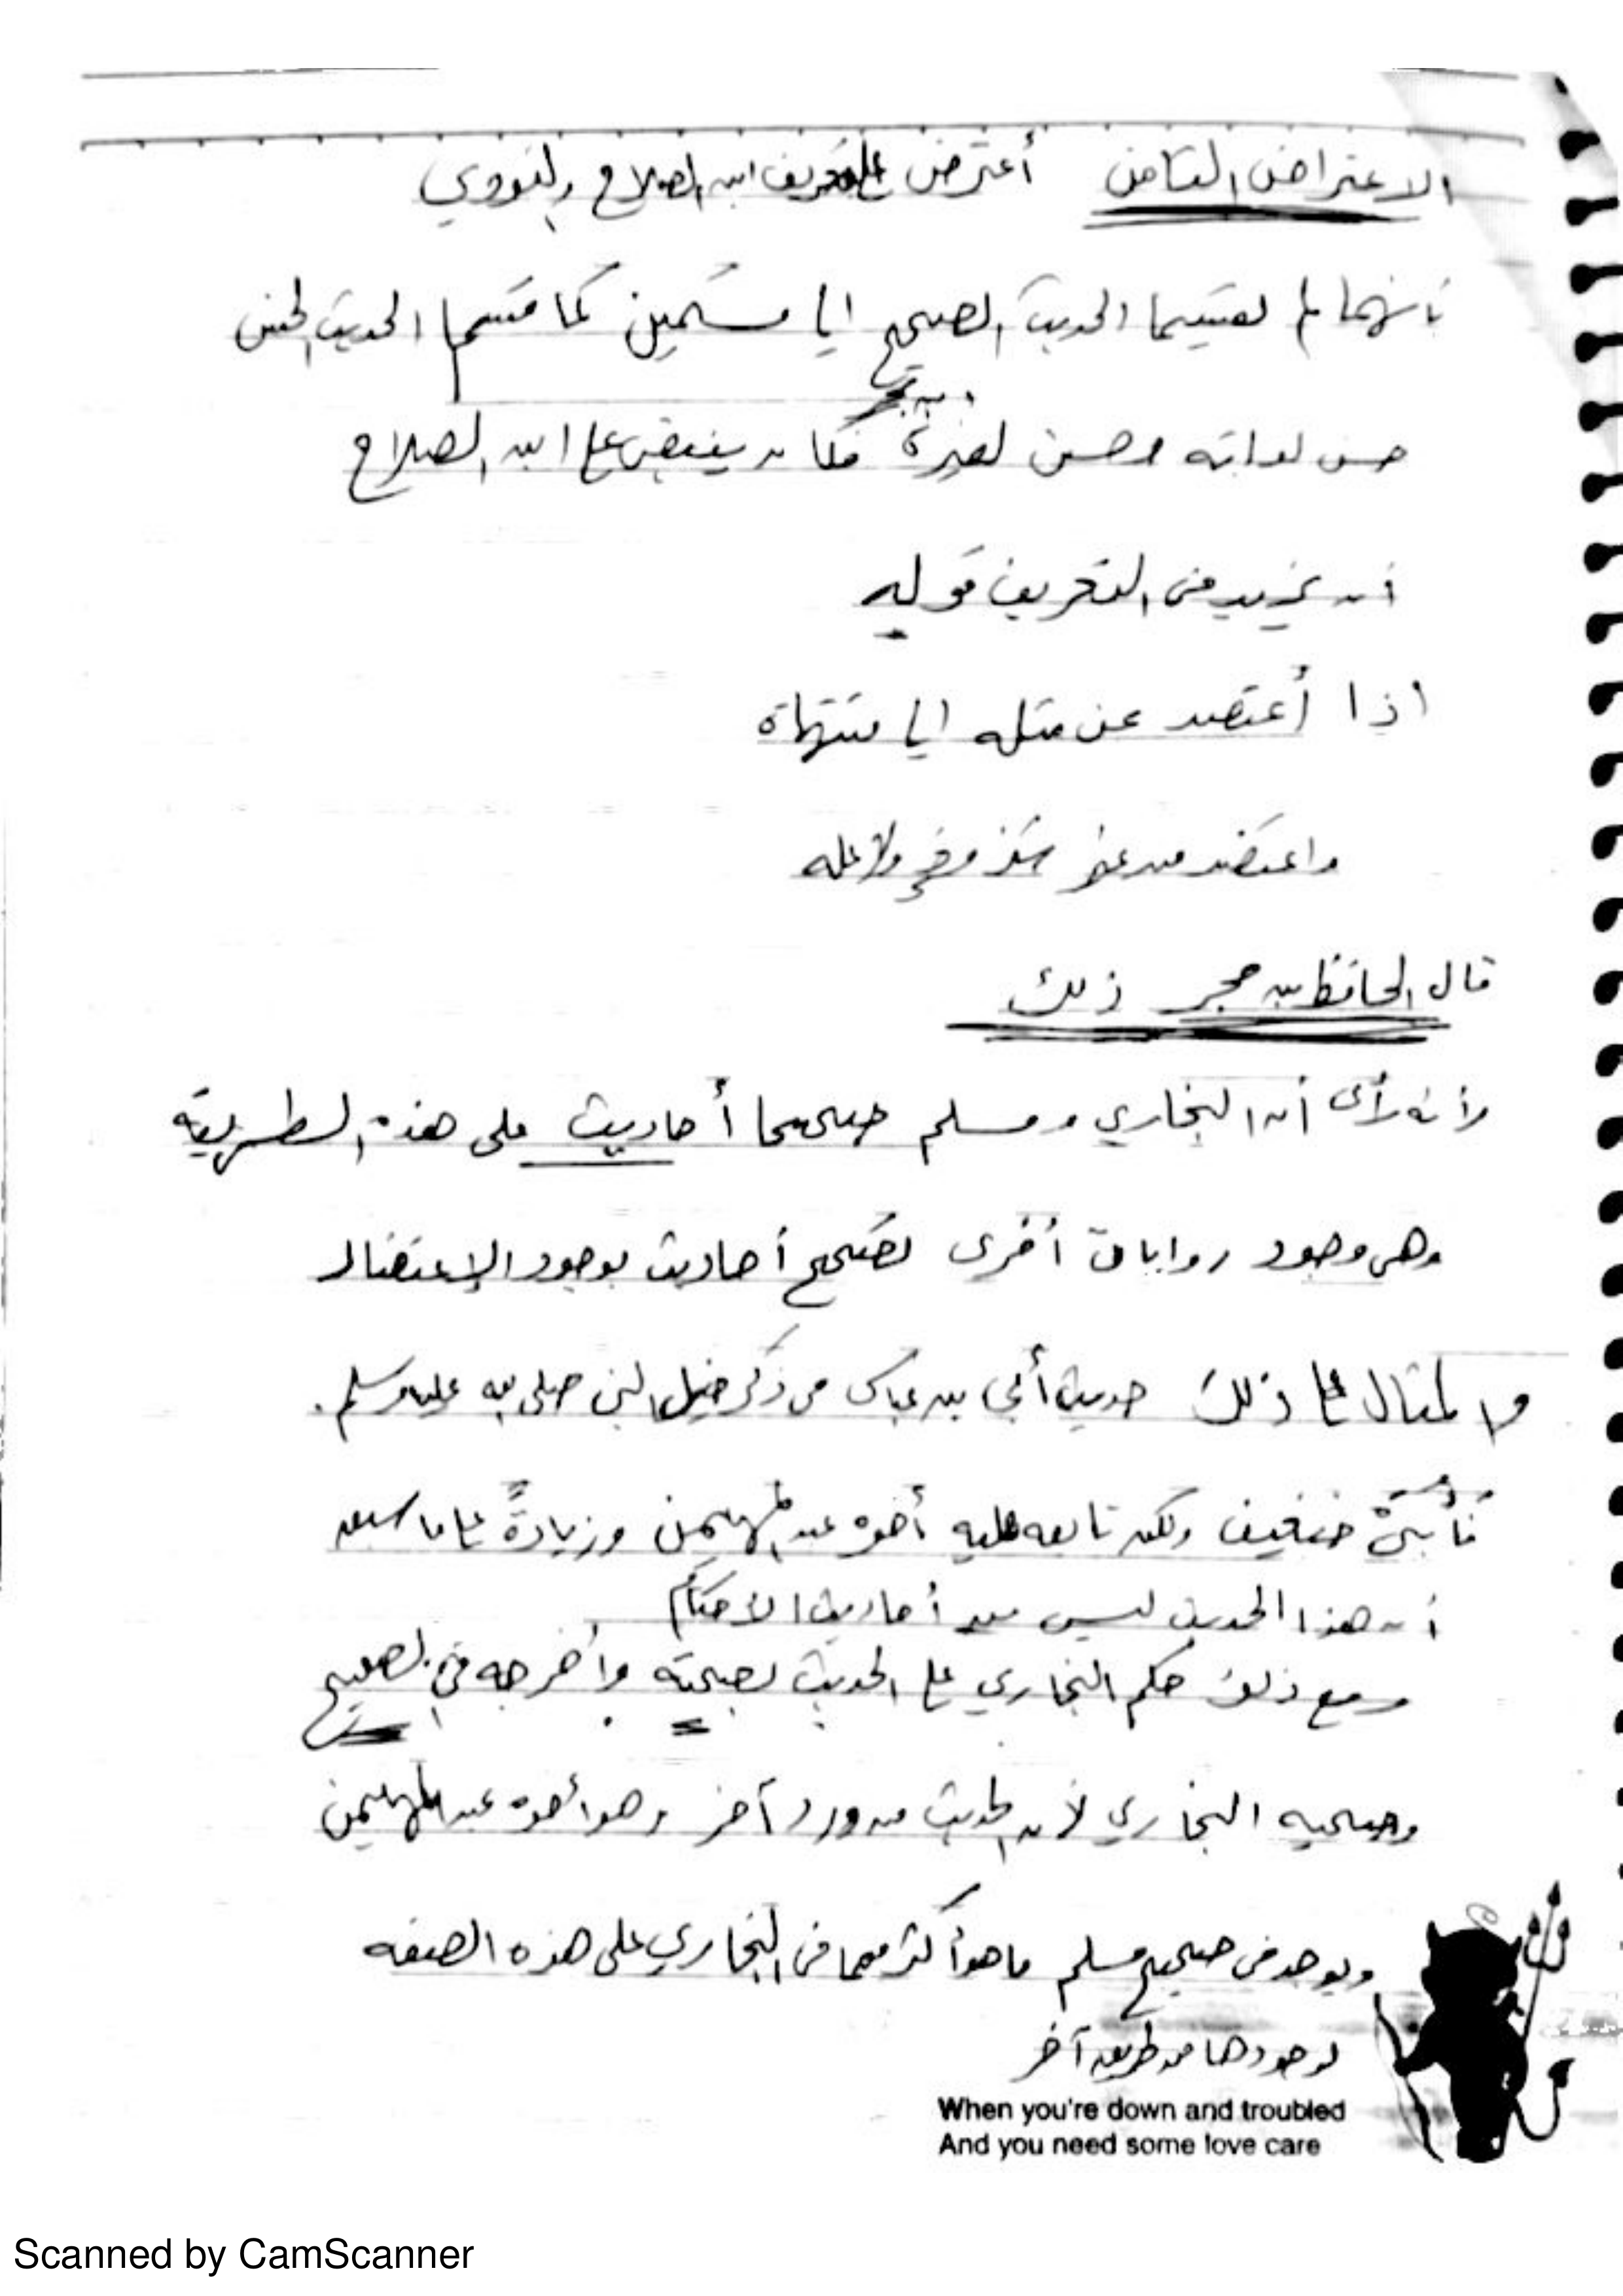 الاعتراض الثامن أعترض على تعريف ابن الصلاح والنووي
بأنهما لم يقسما الحديث الصحيح إلى قسمين كما قسما الحديث الحسن
حسن لذاته وحسن لغيره فكان ينبغي على ابن الصلاح
أن يزيد في التعريف قوله
اذا أعتضد عن مثله الى منتهاة
واعتضد من غير شذوذ ولا علة
قال الحافظ بن حجر ذلك
لأنه رأى أن البخاري ومسلم صححا أحاديث على هذه الطريقة
وهي وجود روايات أخرى تصحح أحاديث بوجود الإعتضاد
والمثال على ذلك حديث أبي بن عباس في ذكر خيل النبي صلى الله عليه وسلم.
فأبيّ ضعيف ولكن تابعه عليه أخوه عبد المهيمن وزيادةً على ما سبق
أن هذا الحديث ليس من أحاديث الأحكام
ومع ذلك حكم البخاري على الحديث بصحته وأخرجه في الصحيح
وصححه البخاري لأن الحديث من ورد آخر وهو أخوه عبد المهيمن
ويوجد في صحيح مسلم ما هو أكثر مما في البخاري على هذه الصفه
لوجودها من طريق آخر
When you're down and troubled
And you need some love care
Scanned by CamScanner